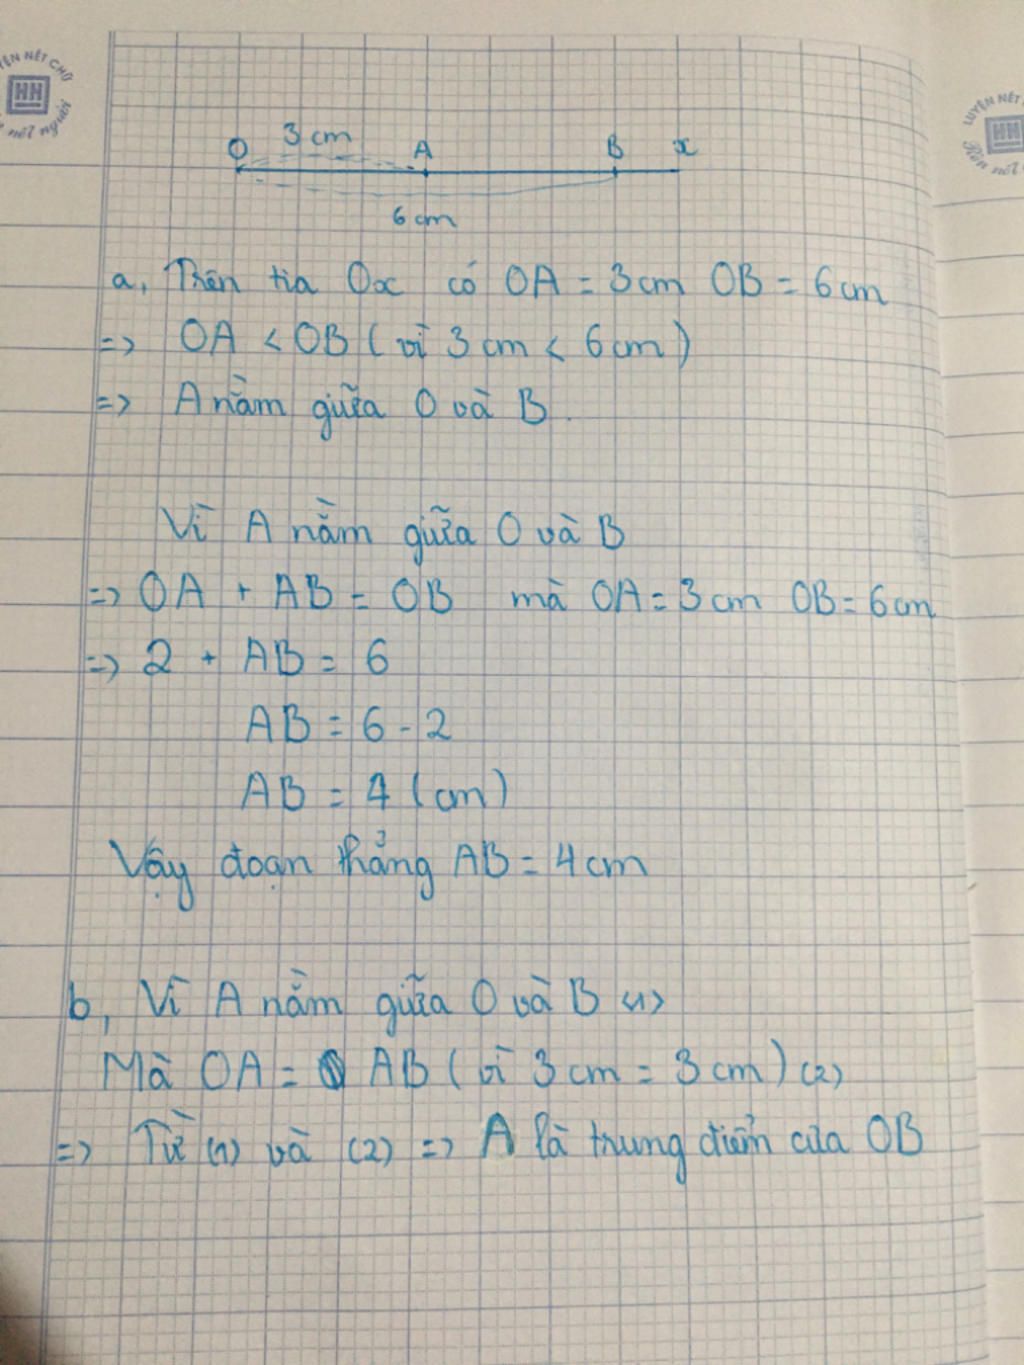 LUYỆN NÉT CHỮ
HH
Rèn nết người
LUYỆN NÉT
HH
Rèn nết
3 cm
O A B x
6 cm
a, Trên tia Ox có OA = 3cm OB = 6cm
=> OA < OB ( vì 3 cm < 6 cm )
=> A nằm giữa O và B.
Vì A nằm giữa O và B
=> OA + AB = OB mà OA = 3cm OB = 6cm
=> 2 + AB = 6
AB = 6 - 2
AB = 4 (cm)
Vậy đoạn thẳng AB = 4cm
b, Vì A nằm giữa O và B (1)
Mà OA = AB ( vì 3cm = 3cm ) (2)
=> Từ (1) và (2) => A là trung điểm của OB